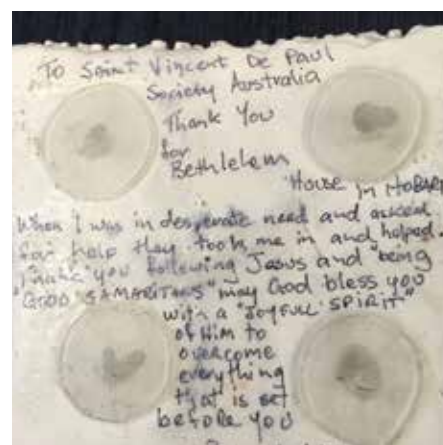 To Saint Vincent De Paul
Society Australia
Thank You
for
Bethlehem
House in HOBART
When I was in desperate need and asked
for help they took me in and helped.
Thank you following Jesus and "being
GOOD "SAMARITANS" may God bless you
with a "JOYFULL SPIRIT"
of Him to
overcome
everything
that is set
before you